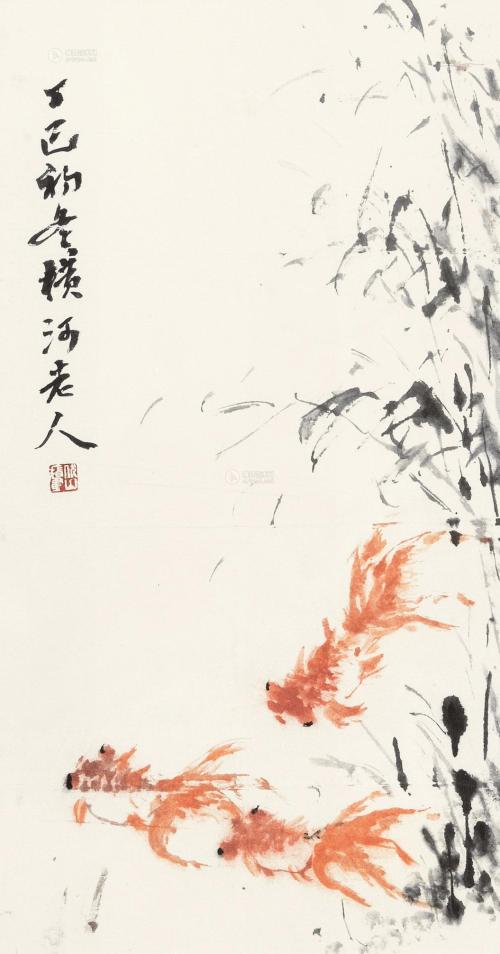 丁巳初冬横河老人